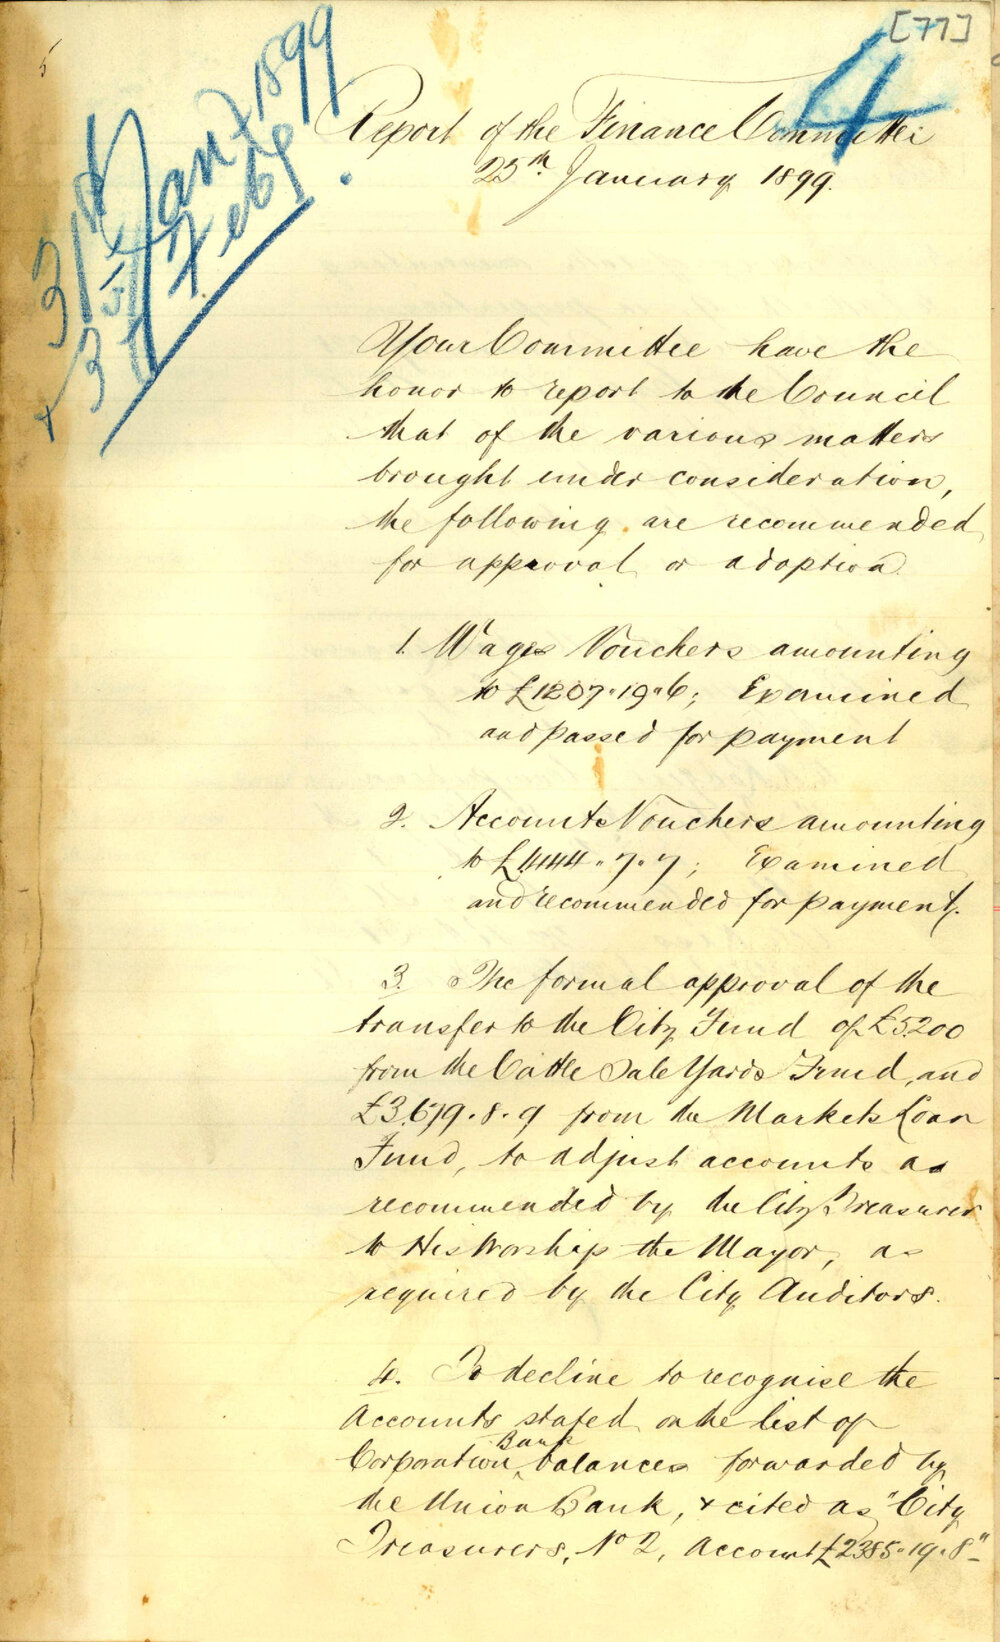 [77]
4
31st Jany 1899
+ 3rd Feby
Report of the Finance Committee
25th January 1899.
Your Committee have the
honor to report to the Council
that of the various matters
brought under consideration,
the following are recommended
for approval or adoption
1. Wages Vouchers amounting
to £1207.19.6; Examined
and passed for payment
2. Accounts Vouchers amounting
to £4144.7.7; Examined
and recommended for payment.
3. The formal approval of the
transfer to the City Fund of £5200
from the Cattle Sale Yards Fund, and
£3,679.8.9 from the Markets Loan
Fund, to adjust accounts as
recommended by the City Treasurer
to His Worship the Mayor, as
required by the City Auditors.
4. To decline to recognise the
Accounts stated on the list of
Corporation Bank balances forwarded by
the Union Bank, & cited as "City
Treasurers, No 2, Account £2385.19.8"